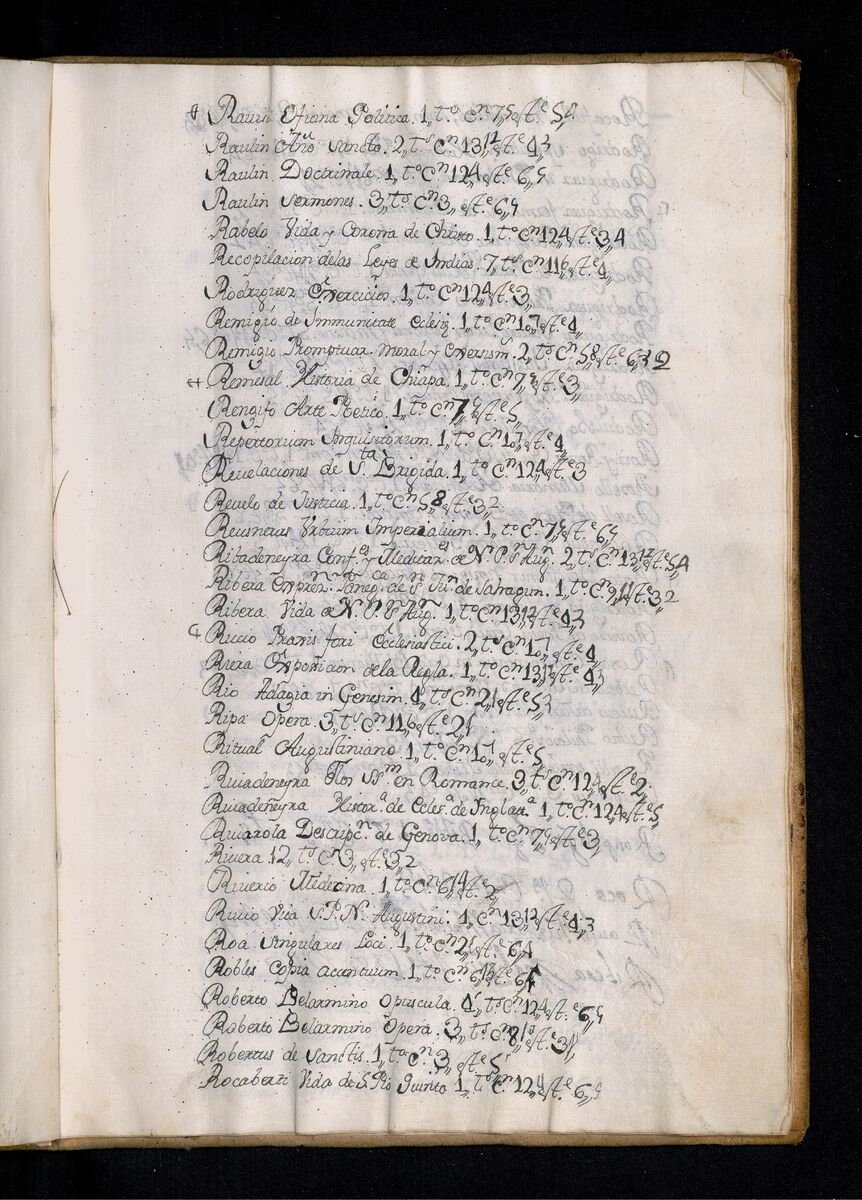 Rauin Ofiana Politica. 1,, to. Cn. 7,5 Ate. 5,,
Raulin Anu Sancto. 2,, ts. Cn. 13,12 Ate. 4,,3
Raulin Doctrinale. 1,, to. Cn. 12,,4 Ate. 6,,5
Raulin Sermones. 3,, ts. Cn. 3,, Ate. 6,,5
Rabelo Vida y Corona de Christo. 1,, to. Cn. 12,,4 Ate. 3,,4
Recopilacion delas Leyes de Indias. 7,, ts. Cn. 11,6 Ate. 4,,
Rodriguez Exercicios. 1,, to. Cn. 12,,4 Ate. 3,,
Remigio de Immunitate Eclesiq. 1,, to. Cn. 10,,7 Ate. 4,,
Remigio Promptuar. Moral y 2,, to. Cn. 5,,8 Ate. 6,,
Remesal Historia de Chiapa. 1,, to. Cn. 7,, Ate. 3,,
Rengifo Arte Poetico. 1,, to. Cn. 7 Ate. 5,,
Repertorium Inquisitorum. 1,, to. Cn. 10,,7 Ate. 4,,
Reuelaciones de Sta. Brigida. 1,, to. Cn. 12,,4 Ate. 3
Reuelo de Justicia. 1,, to. Cn. 5,,8 Ate. 3,,2
Reusnerus Urbium Imperialium. 1,, to. Cn. 7,, Ate. 6,,5
Ribadeneyra Confes. y Meditac. de N. P. Sn. Augn. 2,, ts. Cn. 13,12 Ate. 5,,4
Ribera Paneg.ca de Sn. Jun. de Sahagun. 1,, to. Cn. 9,,11 Ate. 3,,2
Ribera Vida de N. P. Sn. Augn. 1,, to. Cn. 13,12 Ate. 4,,3
Riccio Praxis fori Ecclesiastici. 2,, ts. Cn. 10,,7 Ate. 4,,
Riera Exposicion dela Regla. 1,, to. Cn. 13,12 Ate. 4,,3
Rio Adagia in Genesim. 4,, to. Cn. 2,,1 Ate. 5,,3
Ripa Opera. 3,, ts. Cn. 11,,6 Ate. 2,,1
Ritual Augustiniano 1,, to. Cn. 10,,7 Ate. 5,,
Riuadeneyra Flos SSm. en Romance. 3,, ts. Cn. 12,,4 Ate. 2,,
Riuadeneyra Histora. de Eclesa. de Inglatta. 1,, to. Cn. 12,,4 Ate. 5,,
Riuarola Descripcn. de Genova. 1,, to. Cn. 7,, Ate. 3,,
Rivera 12,, to. Cn. 3,, Ate. 3,,2
Riuerio Medecina. 1,, to. Cn. 6,14 Ate. 2,,
Riuio Vita S. P. N. Augustini. 1,, Cn. 13,12 Ate. 4,,3
Roa Singulares Loci. 1,, to. Cn. 2,,1 Ate. 6,,4
Robles Copia accentuum. 1,, to. Cn. 6,13 Ate. 6,,
Roberto Belarmino Opuscula. 4,, ts. Cn. 12,,4 Ate. 6,,5
Roberto Belarmino Opera. 3,, ts. Cn. 8,, Ate. 3,,
Robertus de Sanctis. 1,, to. Cn. 3,, Ate. 5,,
Rocaberti Vida de S. Pio Quinto 1,, to. Cn. 12,,4 Ate. 6,,5